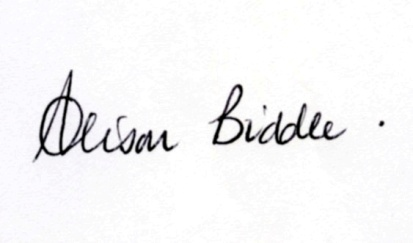 Alison Biddle.